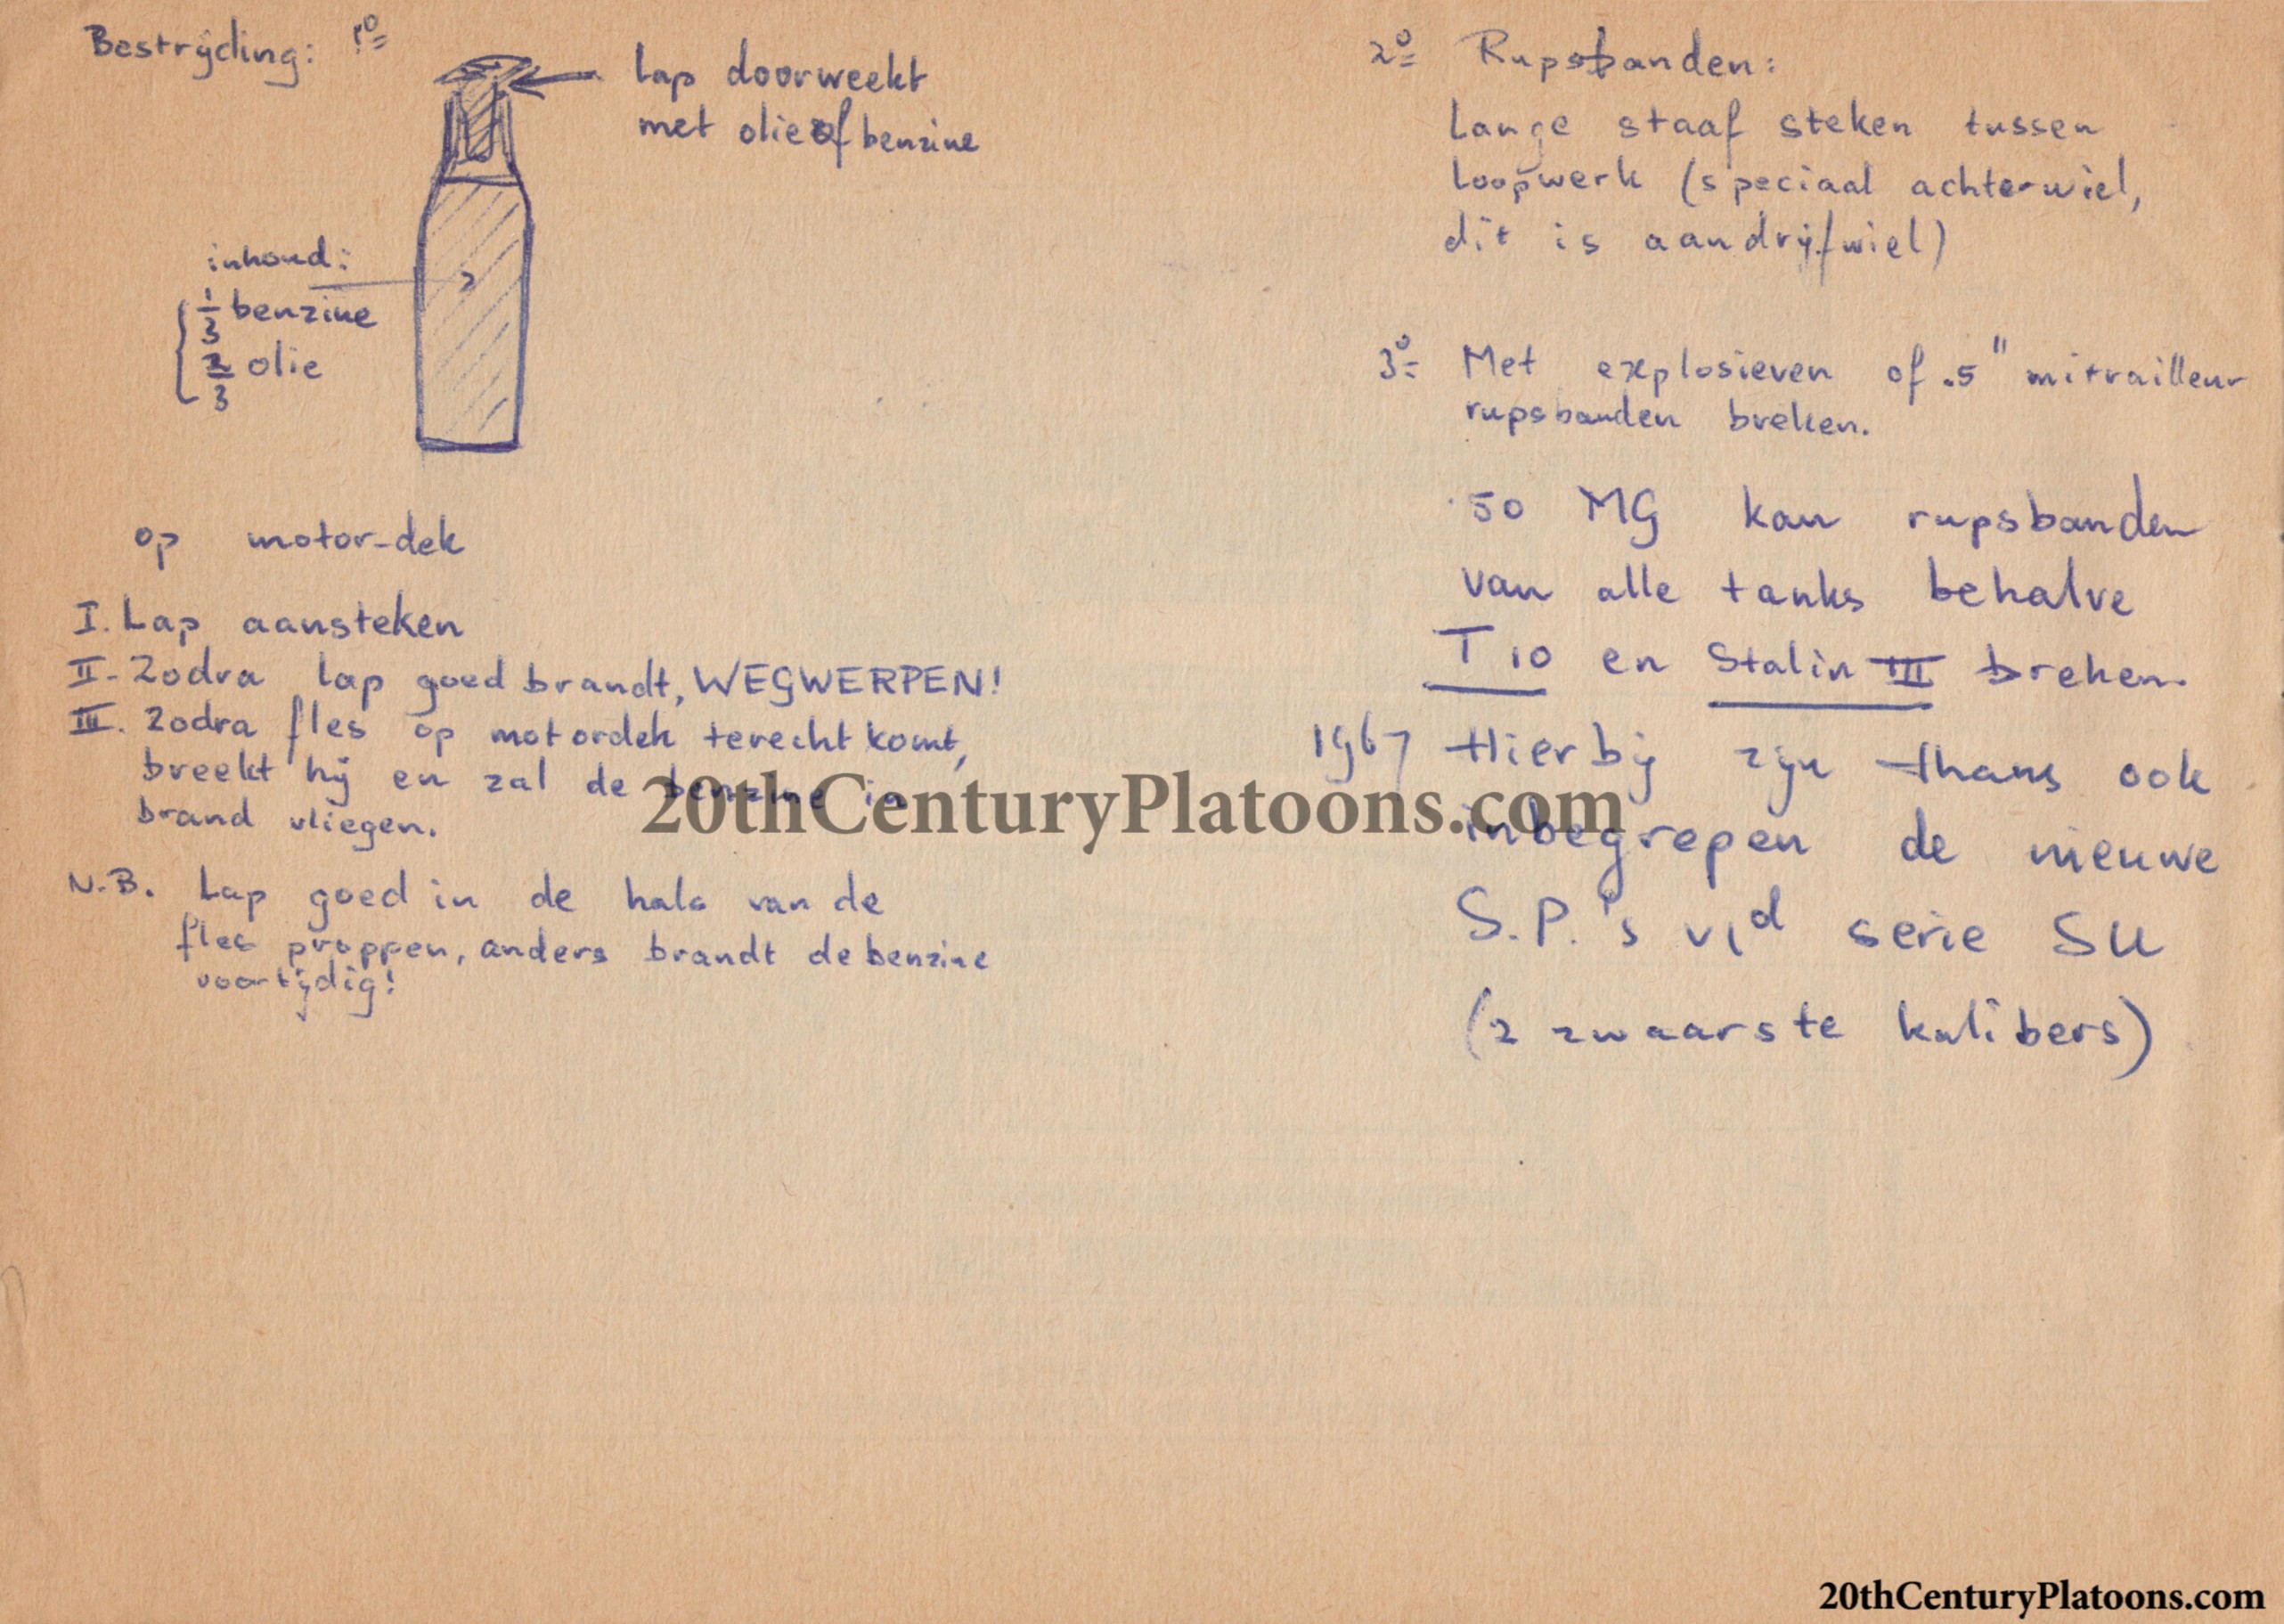 Bestrijding: 1º
lap doorweekt
met olie of benzine
inhoud:
1/3 benzine
2/3 olie
op motor-dek
I. Lap aansteken
II. Zodra lap goed brandt, WEGWERPEN!
III. Zodra fles op motordek terecht komt,
breekt hij en zal de benzine in
brand vliegen.
N.B. Lap goed in de hals van de
fles proppen, anders brandt de benzine
voortijdig!
2º Rupsbanden:
Lange staaf steken tussen
loopwerk (speciaal achterwiel,
dit is aandrijfwiel)
3º Met explosieven of .5" mitrailleur
rupsbanden breken.
.50 MG kan rupsbanden
van alle tanks behalve
T 10 en Stalin III breken.
1967 Hierbij zijn thans ook
inbegrepen de nieuwe
S.P.'s v/d serie SU
(2 zwaarste kalibers)
20thCenturyPlatoons.com
20thCenturyPlatoons.com